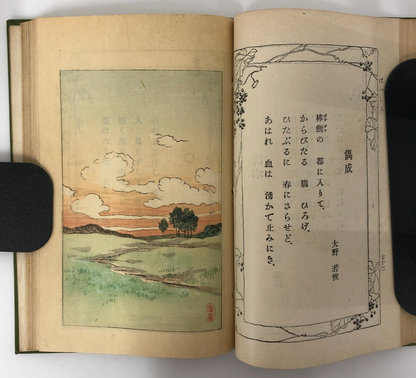 偶成
大野 若
の 都に入りて、
からびたる 腸 ひろげ、
ひたぶるに 春にさらせど、
あはれ 血は 湧かで止みにき。